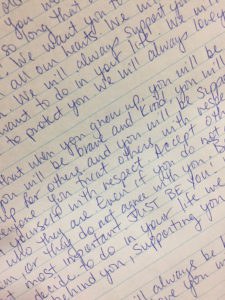 so long that
. We want you to
all our hearts. We will
. We will always support you
want to do in your life. We will
to protect you we will always love
that when you grow up, you will be
you will be brave and kind, you will
up for others and you will be
everyone you treat others with respect
yourself with respect. Accept others
who they are. Even if you do not
em, or they do not agree with you.
most important. JUST BE YOU
decide to do in your life we
behind you, supporting you
will always be
love you